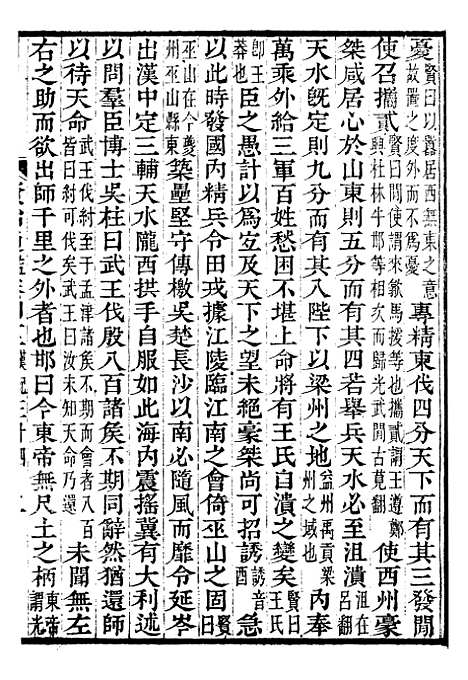 憂賢曰以囂居西無東之意故置之度外而不為憂專精東伐四分天下而有其三發間
使召攜貳賢曰間使謂來歙馬援等也攜貳謂王遵鄭興杜林牛邯等相次而歸光武間古莧翻使西州豪
桀咸居心於山東則五分而有其四若舉兵天水必至沮潰沮在呂翻
天水旣定則九分而有其八陛下以梁州之地益州禹貢梁州之域也內奉
萬乘外給三軍百姓愁困不堪上命將有王氏自潰之變矣賢曰王氏
卽王莽也臣之愚計以爲宜及天下之望未絕豪桀尚可招誘誘音酉急
以此時發國內精兵令田戎據江陵臨江南之會倚巫山之固賢曰
巫山在今夔州巫山縣東築壘堅守傳檄吳楚長沙以南必隨風而靡令延岑
出漢中定三輔天水隴西拱手自服如此海內震搖冀有大利述
以問羣臣博士吳柱曰武王伐殷八百諸矦不期同辭然猶還師
以待天命武王伐紂至于孟津諸矦不期而會者八百皆曰紂可伐矣武王曰汝未知天命乃還未聞無左
右之助而欲出師千里之外者也邯曰今東帝無尺土之柄東帝謂光